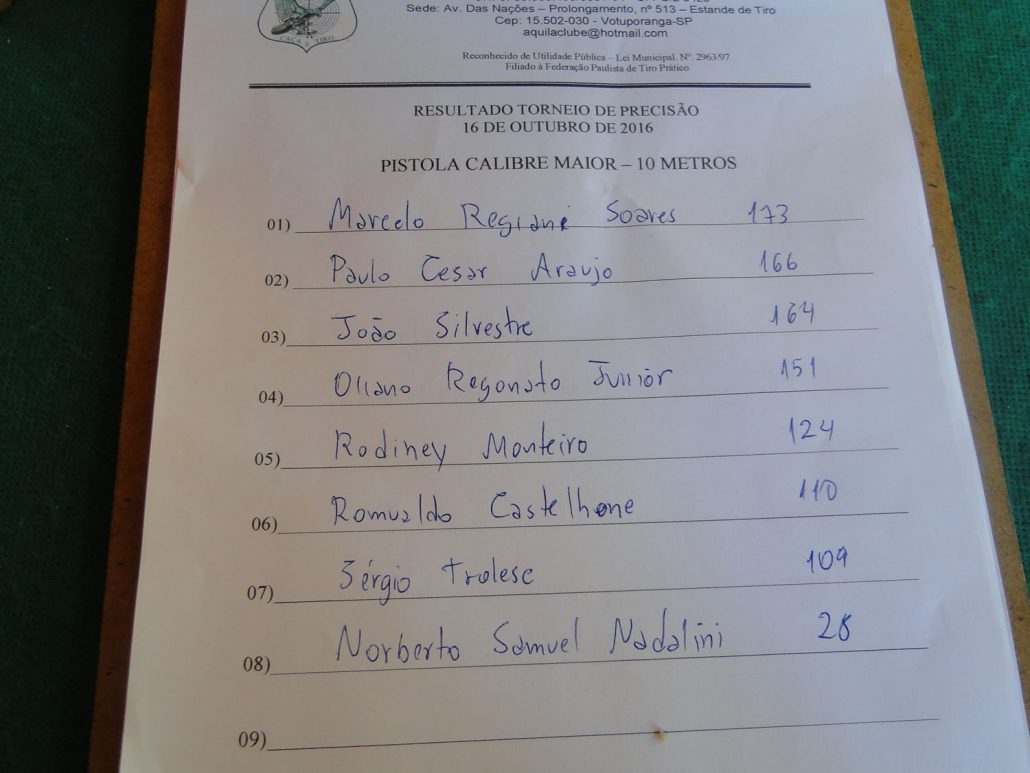 CAÇA E TIRO
Sede: Av. Das Nações – Prolongamento, nº 513 – Estande de Tiro
Cep: 15.502-030 - Votuporanga-SP
aquilaclube@hotmail.com
Reconhecido de Utilidade Pública – Lei Municipal. Nº. 2963/97
Filiado à Federação Paulista de Tiro Prático
RESULTADO TORNEIO DE PRECISÃO
16 DE OUTUBRO DE 2016
PISTOLA CALIBRE MAIOR – 10 METROS
01) Marcelo Regiani Soares 173
02) Paulo Cesar Araujo 166
03) João Silvestre 164
04) Oliano Regonato Junior 151
05) Rodiney Monteiro 124
06) Romualdo Castelhone 110
07) Sérgio Trolese 109
08) Norberto Samuel Nadalini 28
09)